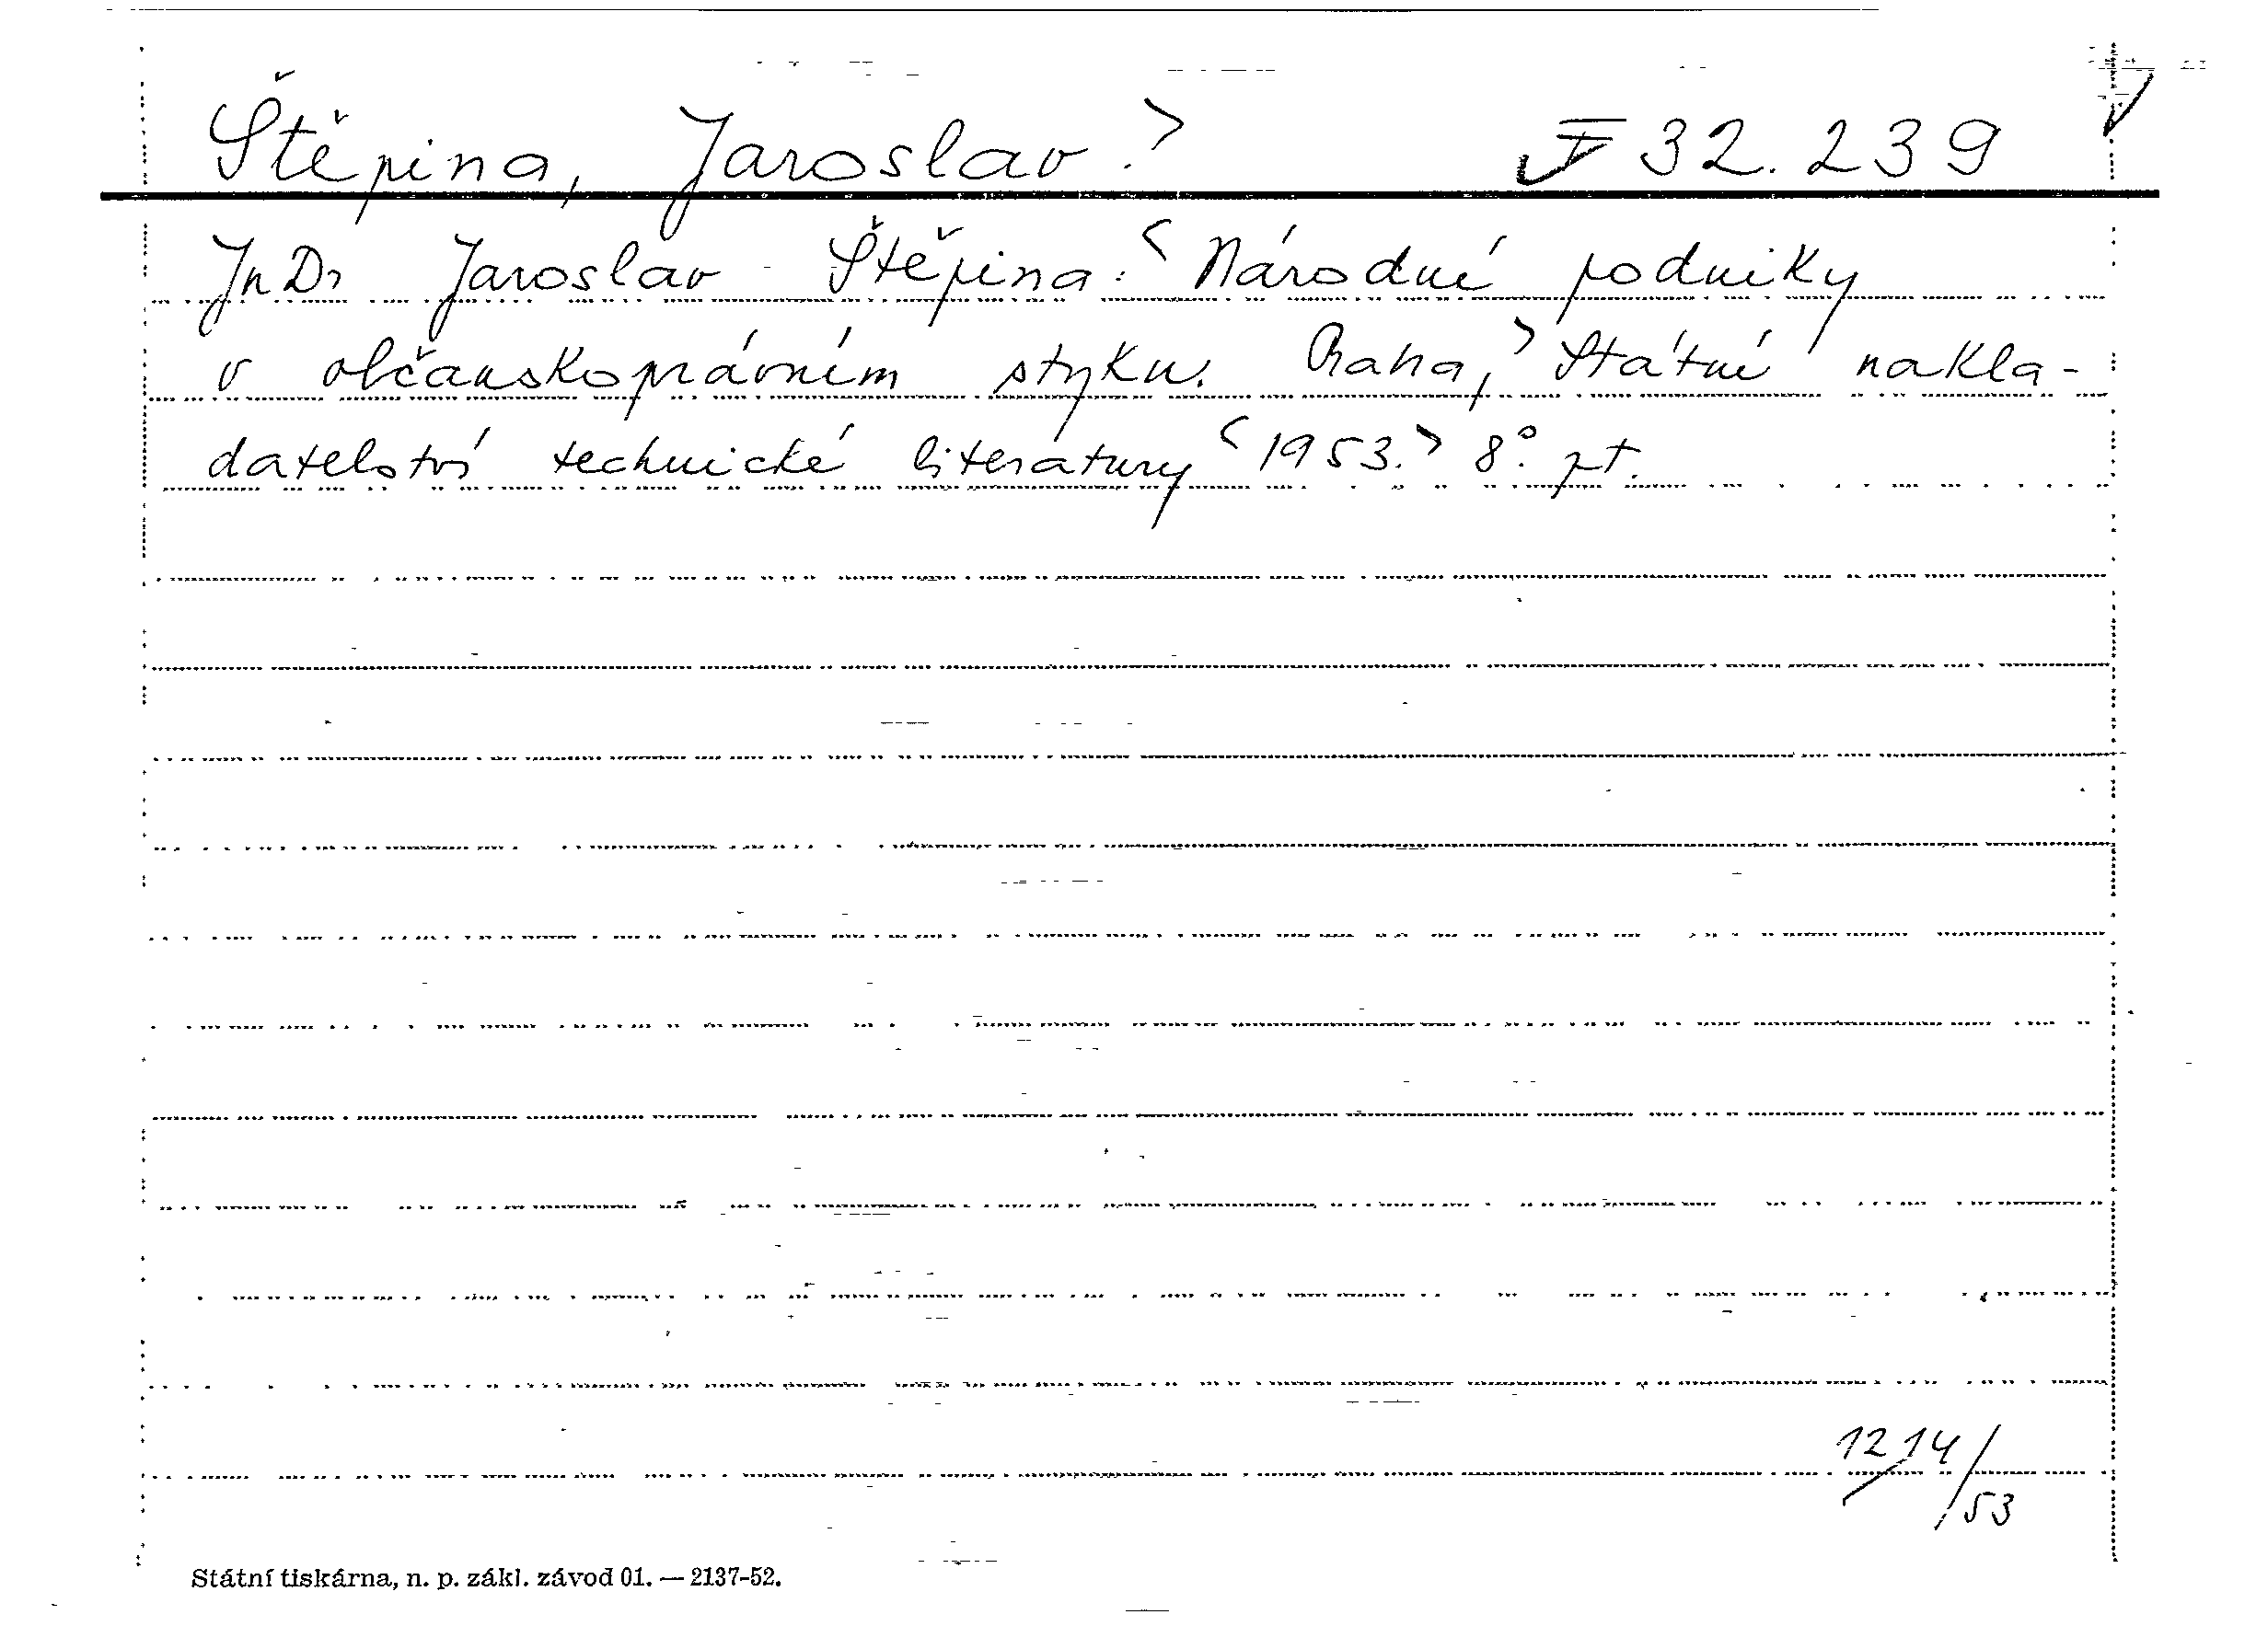 Štěpina, Jaroslav > F 32.239
JuDr Jaroslav Štěpina: < Národní podniky
v občanskoprávním styku. Praha, > Státní nakla-
datelství technické literatury < 1953. > 8°. pt.
1214/53
Státní tiskárna, n. p. zákl. závod 01. — 2137-52.